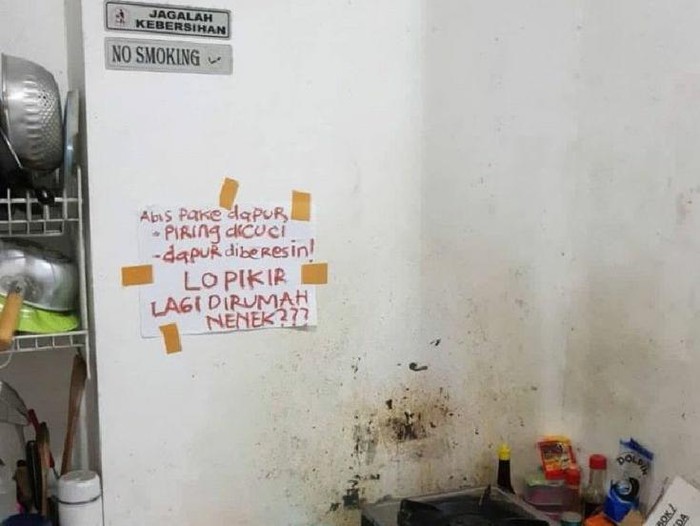 JAGALAH
KEBERSIHAN
NO SMOKING
Abis pake dapur,
- PIRING dicuci
- dapur diberesin!
LO PIKIR
LAGI DIRUMAH
NENEK???
DOLPIN